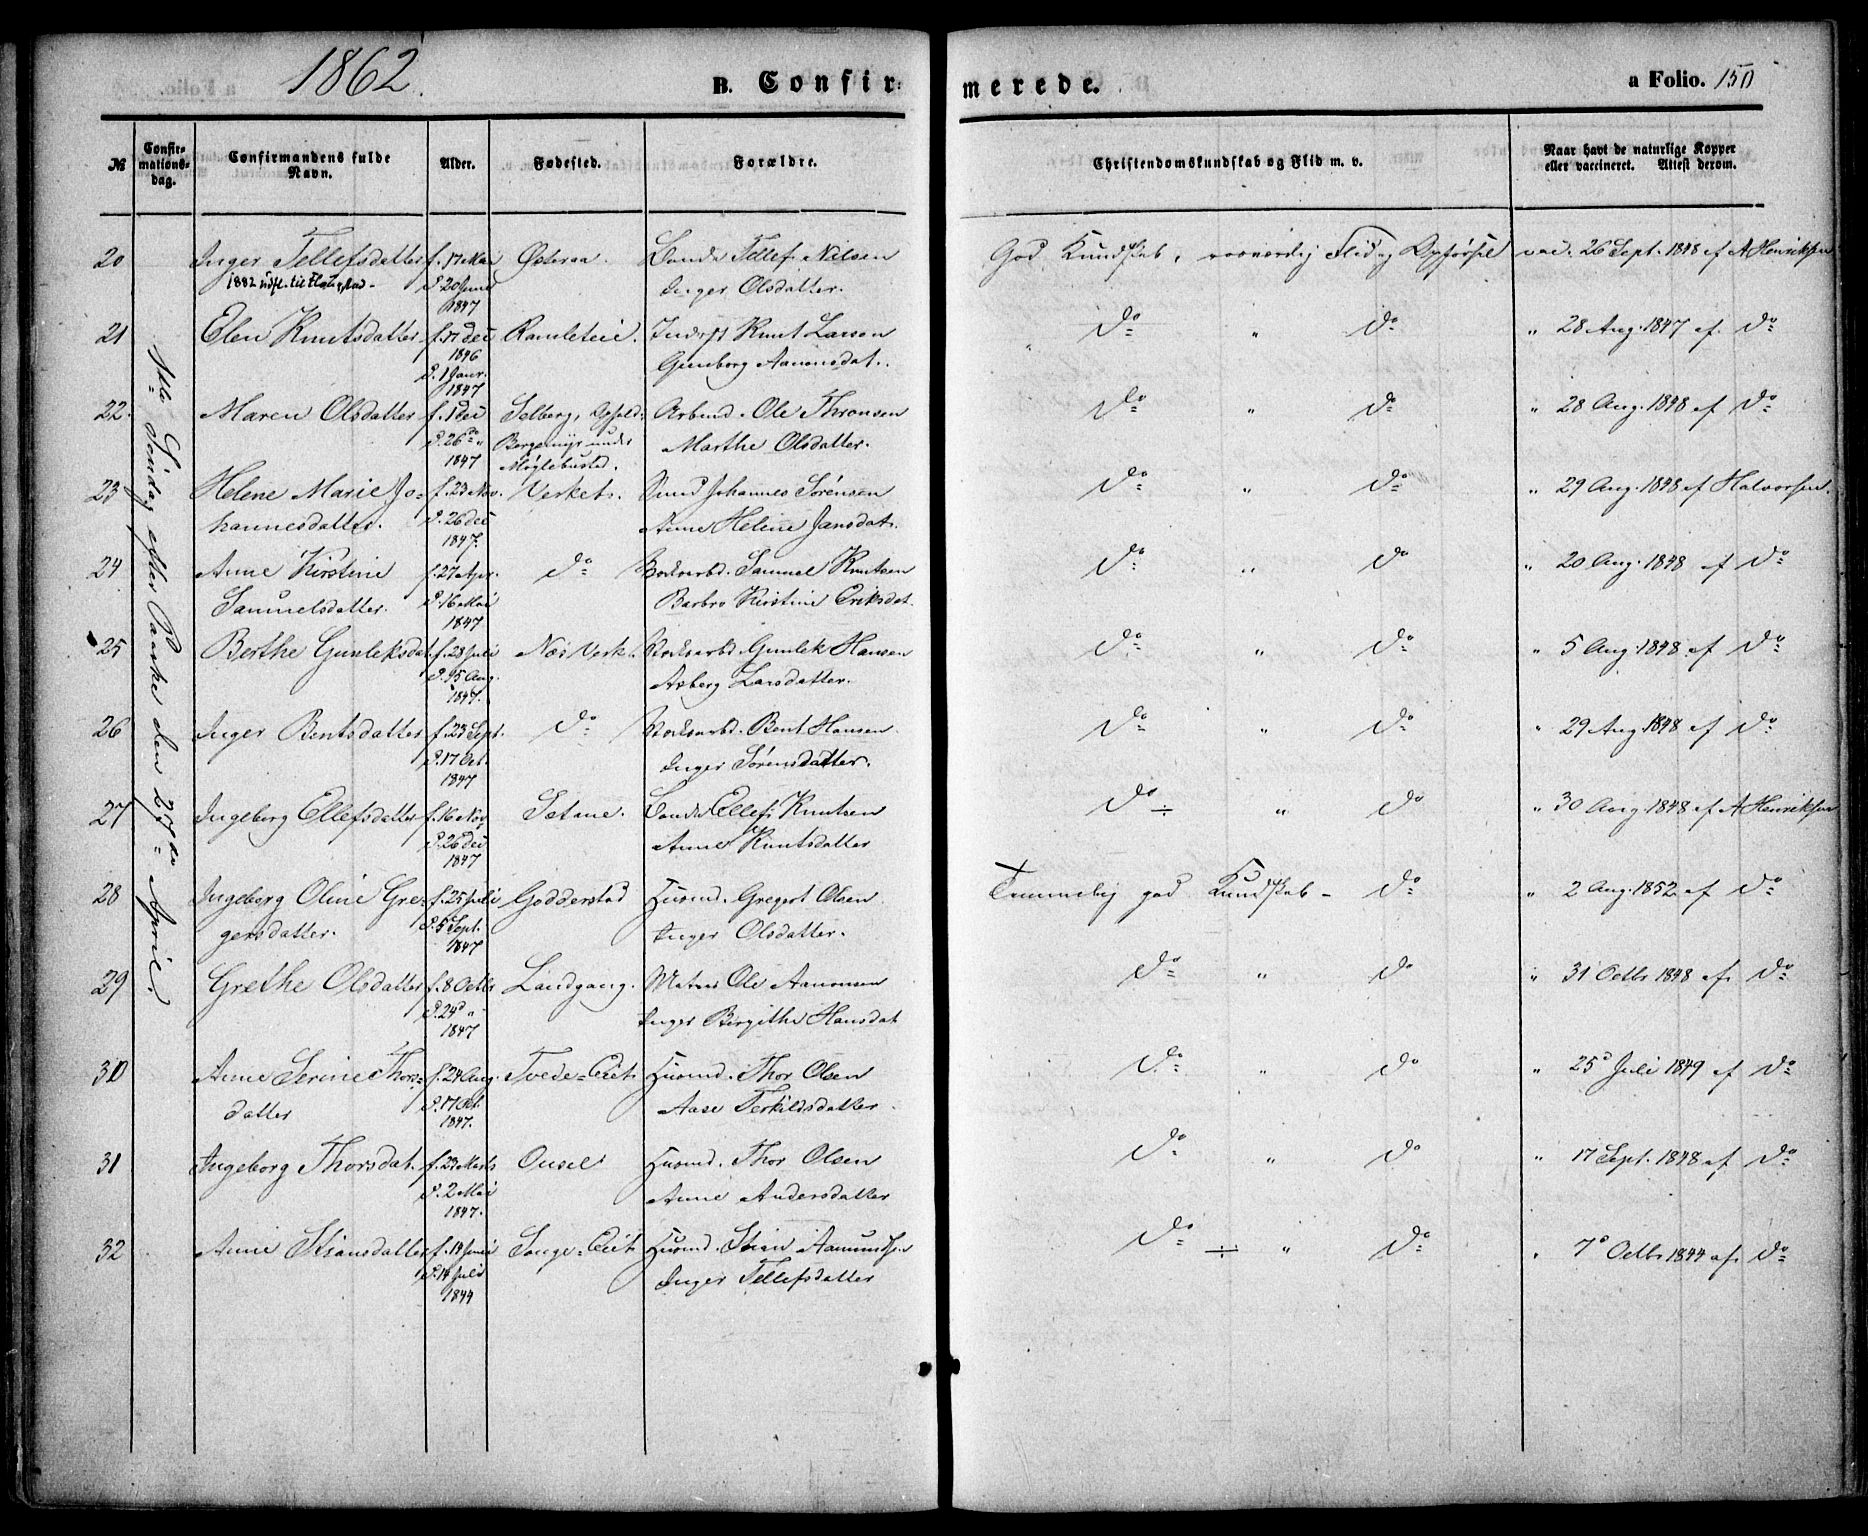 1862. B. Confirmerede. a Folio. 150
№ Confirmationsdag. Confirmandens fulde Navn. Alder. Fødested. Forældre. Christendomskundskab og Flid m. v. Naar havt de naturlige Kopper eller vaccineret. Attest derom.
Søndag efter Paaske den 27de April.
20 Inger Tellefsdatter f. 17 Mai Østeraa. Tellef Nilsen God Kundskab, Flid og Opførsel vac. 26 Sept. 1848 af A Henriksen
1882 udfl. til D. 20 Juni Inger Olsdatter.
1847
21 Elen Knutsdatter f. 17 Dec Ramleteie. Inderst Knut Larsen do " do " 28 Aug. 1847 af. do
1846 Gunborg Aanonsdat.
D. 1 Janr.
1847
22. Maren Olsdatter f. 1 Dec Selberg, Ophold: Arbmd. Ole Thronsen do " do " 28 Aug. 1848 af do
D. 26 do " Bergemyr under Marthe Olsdatter.
1847 Møglebustad.
23 Helene Marie Jo= f. 23 Nov. Verket. Smed Johannes Sørensen do " do " 29 Aug. 1848 af Halvorsen.
hannesdatter. D. 26 Dec Anne Helene Jansdat.
1847.
24 Anne Kirstine f. 27 Apr. do Samuel Knutsen do " do " 20 Aug. 1848 af do
Samuelsdatter. D. 16 Mai Barbro Kirstine Eriksdat.
1847
25 Berthe Gunleksdat. f. 28 Juli Næs Verk. Verksarbd. Gunlek Hansen do " do " 5 Aug. 1848 af do
D. 15 Aug. Asberg Larsdatter.
1847.
26 Inger Bentsdatter f. 23 Sept. do Verksarbd. Bent Hansen. do " do " 29 Aug. 1848 af do
D. 17 Oct. Inger Sørensdatter.
1847
27 Ingeborg Ellefsdatter f. 16 Nov Setane. Ellef Knutsen do ÷ " do " 30 Aug. 1848 af A Henriksen
D. 26 Dec Anne Knutsdatter
1847
28 Ingeborg Oline Gre= f. 25 Juli Godderstad Husmd. Gregert Olsen Temmelig god Kundskab - do " 2 Aug. 1852 af do
gersdatter. D. 5 Sept. Inger Olsdatter.
1847
29 Grethe Olsdatter f. 8 Octbr Landgang. Matros Ole Aanonsen do " do " 31 Octbr 1848 af. do
D. 24 do " Inger Birgithe Hansdat
1847
30 Anne Serine Thors= f. 24 Aug. Tvede=Eiet Husmd. Thor Olsen do " do " 25 Juli 1849 af do
datter D. 17 Oct. Aase Terkildsdatter
1847.
31 Ingeborg Thorsdat. f. 23 Marts Husmd. Thor Olsen do " do " 17 Sept. 1848 af do
D. 2 Mai Anne Andersdatter
1847.
32 Anne Stiansdatter f. 13 Juni Songe=Eiet Husmd. Stian Aamundsen do ÷ " do " 7 Octbr 1844 af. do
D. 14 Juli Inger Tellefsdatter
1844